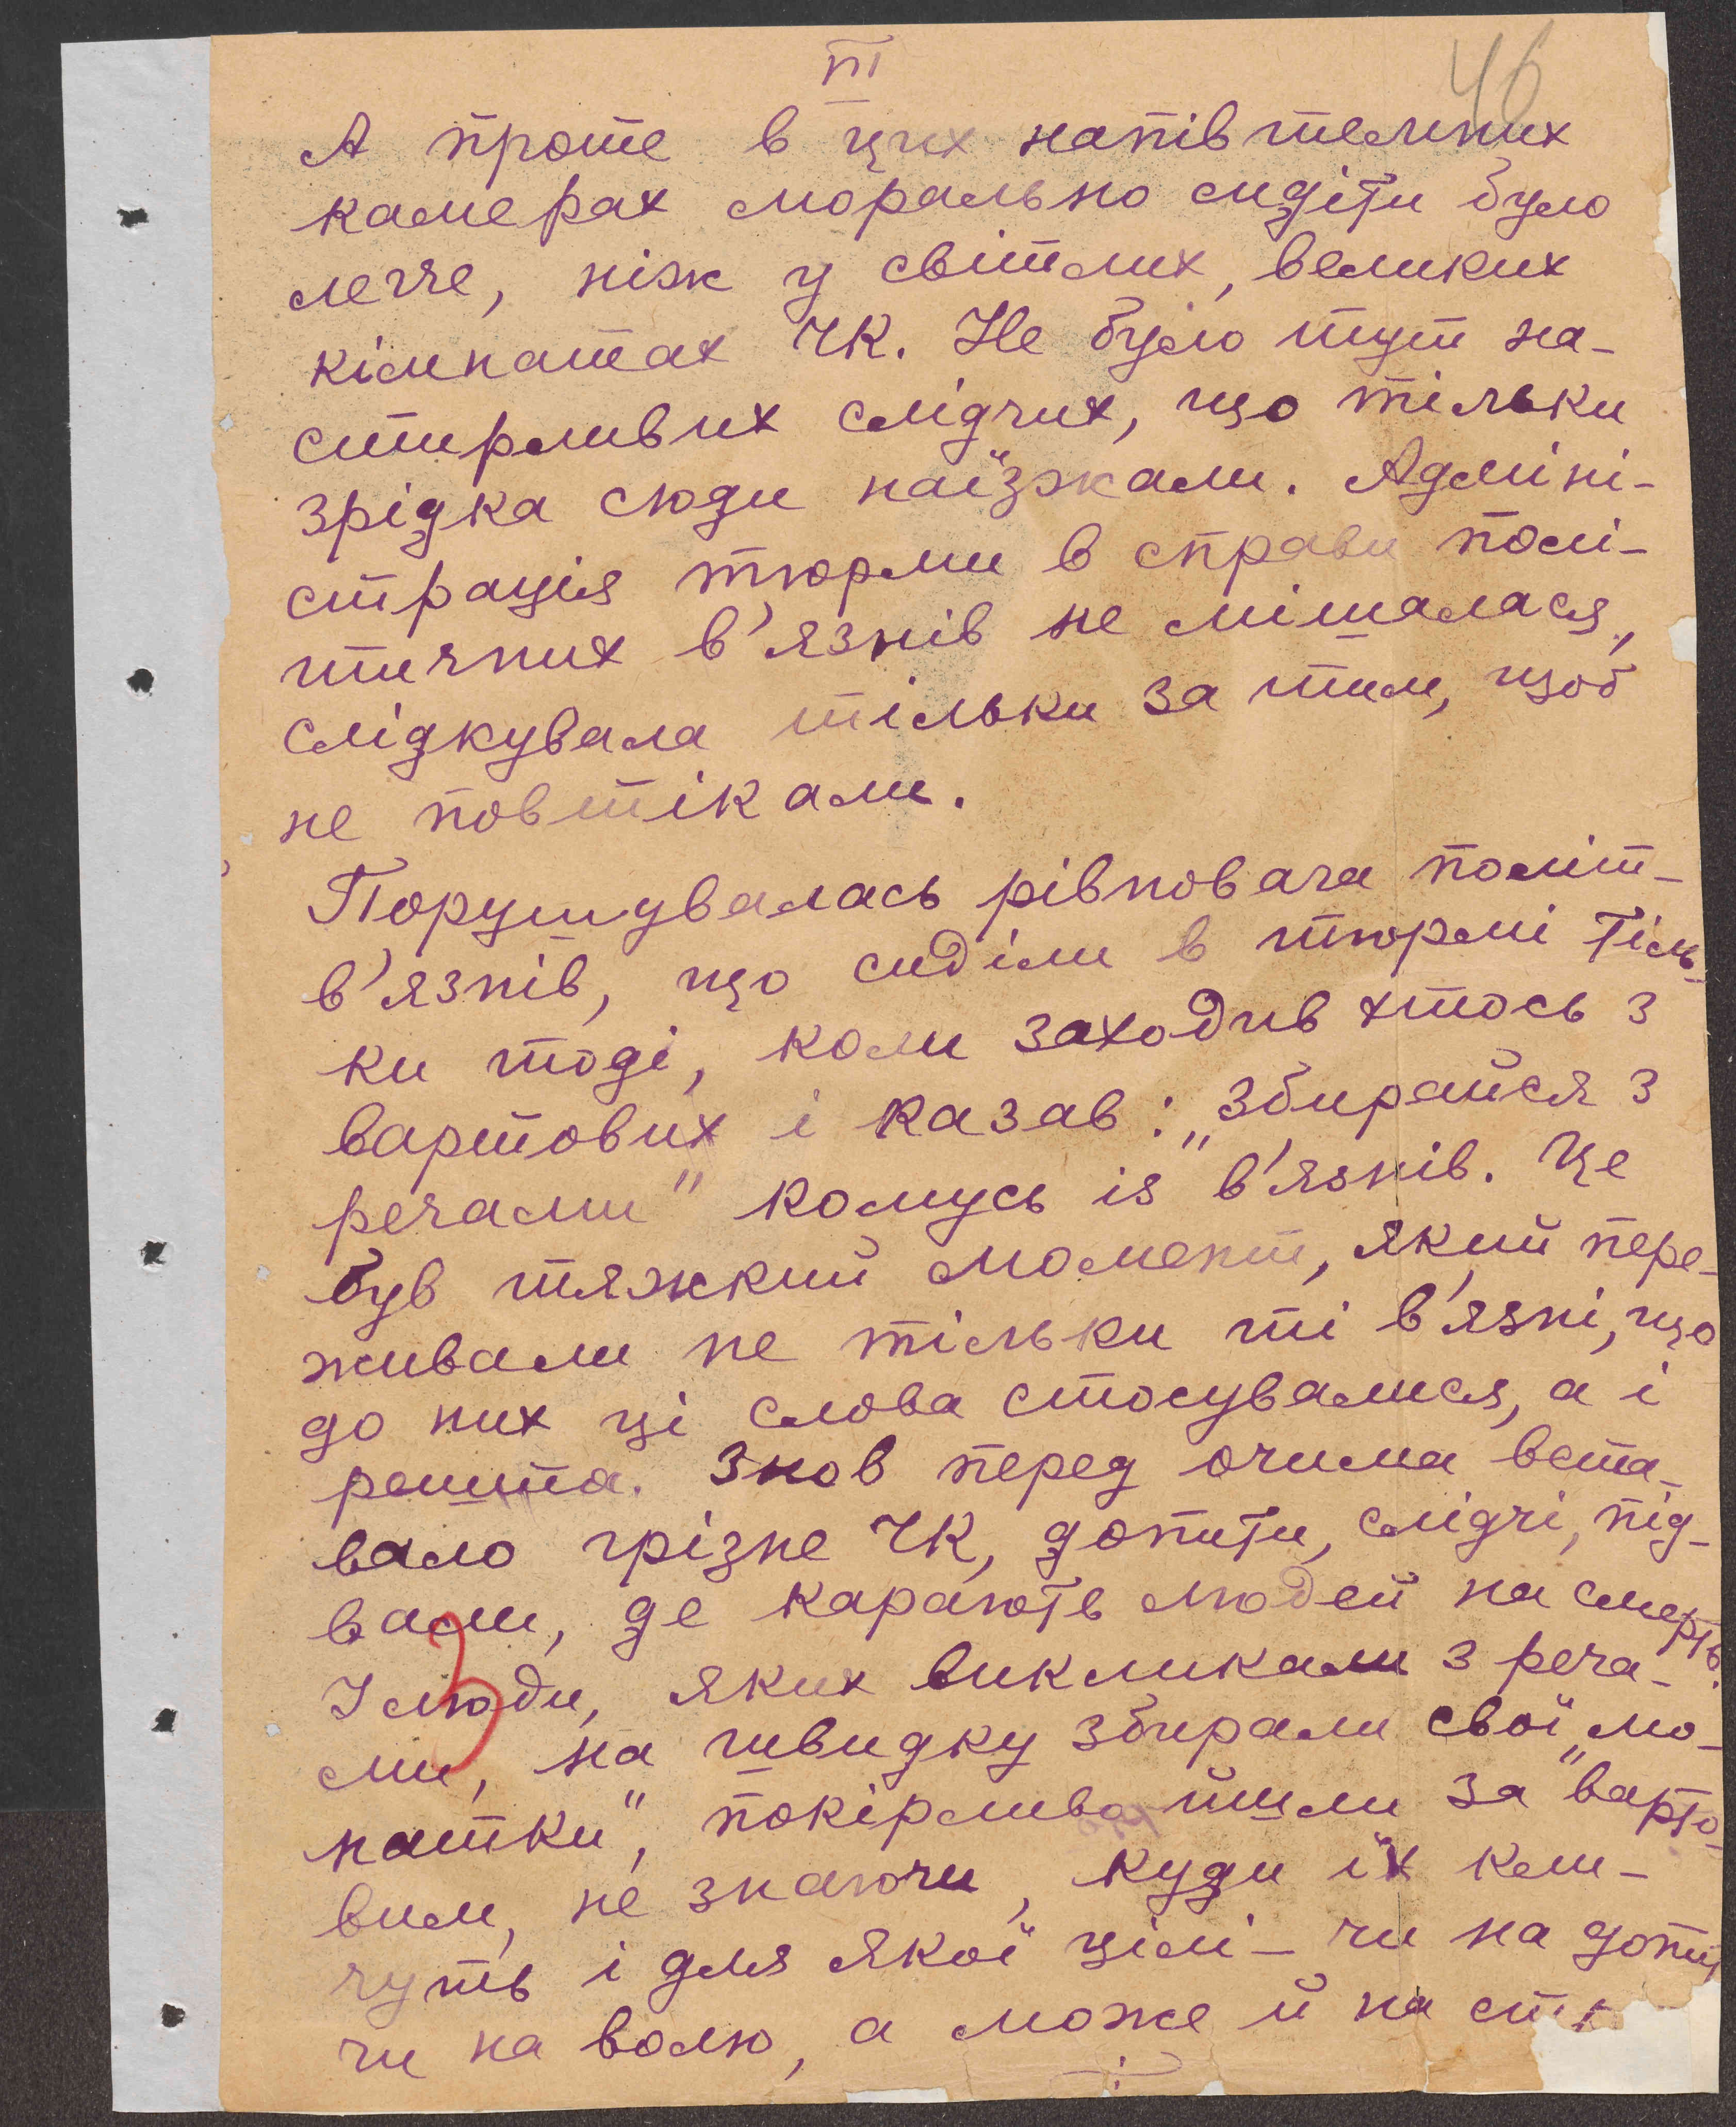 III
46
А проте в цих напівтемних
камерах морально сидіти було
легче, ніж у світлих, великих
кімнатах ЧК. Не було тут на-
стирливих слідчих, що тільки
зрідка сюди наїзжали. Адміні-
страція тюрми в справи полі-
тичних в'язнів не мішалася,
слідкувала тільки за тим, щоб
не повтікали.
Порушувалась рівновага політ-
в'язнів, що сиділи в тюрмі тіль-
ки тоді, коли заходив хтось з
вартових і казав: „Збирайся з
речами" комусь із в'язнів. Це
був тяжкий момент, який пере-
живали не тільки ті в'язні, що
до них ці слова стосувалися, а і
решта. Знов перед очима вста-
вало грізне ЧК, допити, слідчі, під-
вали, де карають людей на смерть.
І люди, яких викликали з реча-
ми, на швидку збирали свої „мо-
натки", покірливо йшли за варто-
вим, не знаючи, куди їх кли-
чуть і для якої цілі – чи на допит
чи на волю, а може й на